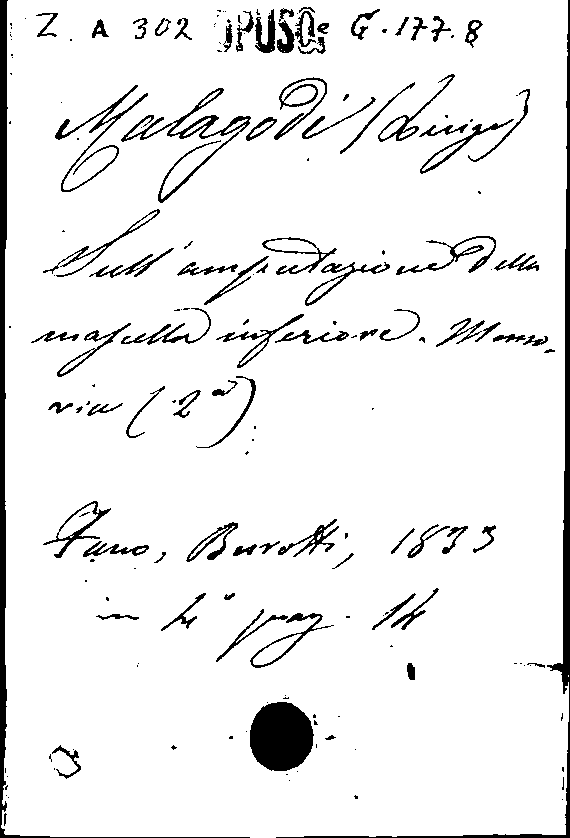 Z A 302 OPUSC. G. 177. 8
Malagodi (Luigi)
Sull'amputazione della
mascella inferiore. Memo-
ria (2ª)
Fano, Burotti, 1833
in 4° pag. 14